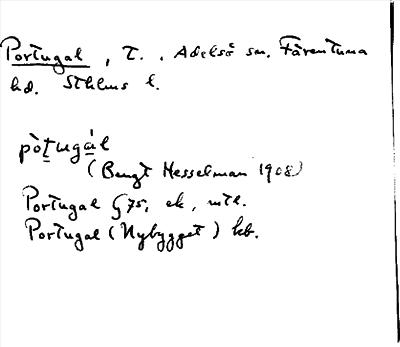 Portugal, T., Adelsö sn. Färentuna
hd. Sthlms l.
pòṯuga̱l
(Bengt Hesselman 1908)
Portugal G 75, ek, mtl.
Portugal (Nybygget) kb.